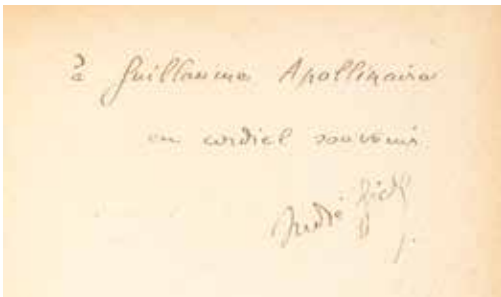 à Guillaume Apollinaire
en cordial souvenir
André Gide